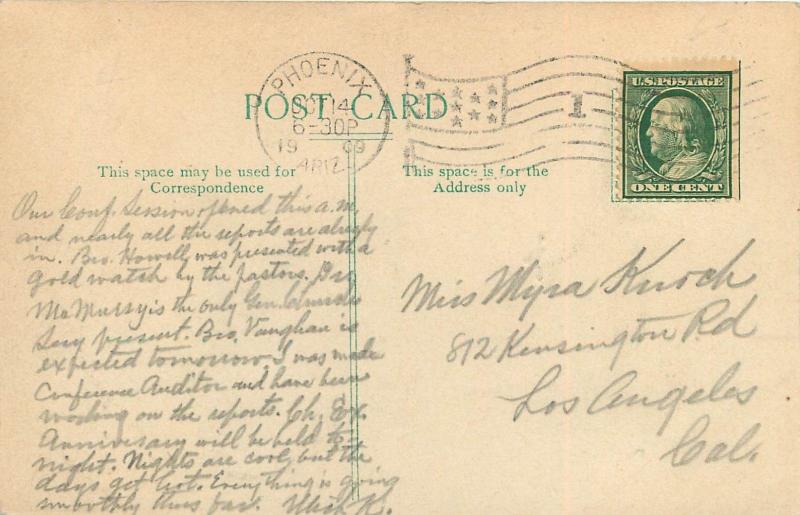 PHOENIX
OCT 14
6-30P
1909
ARIZ.
1
U.S. POSTAGE
ONE CENT
POST CARD
This space may be used for
Correspondence
This space is for the
Address only
Our Conf. Session opened this a.m.
and nearly all the reports are already
in. Bro. Howell was presented with a
gold watch by the pastors. Dr.
McMurry is the only Gen. Church
Secy present. Bro. Vaughan is
expected tomorrow. I was made
Conference Auditor and have been
working on the reports. Ch. Ext.
Anniversary will be held to-
night. Nights are cool, but the
days get hot. Everything is going
smoothly thus far. K.
Miss Myra Knoch
812 Kensington Rd
Los Angeles
Cal.